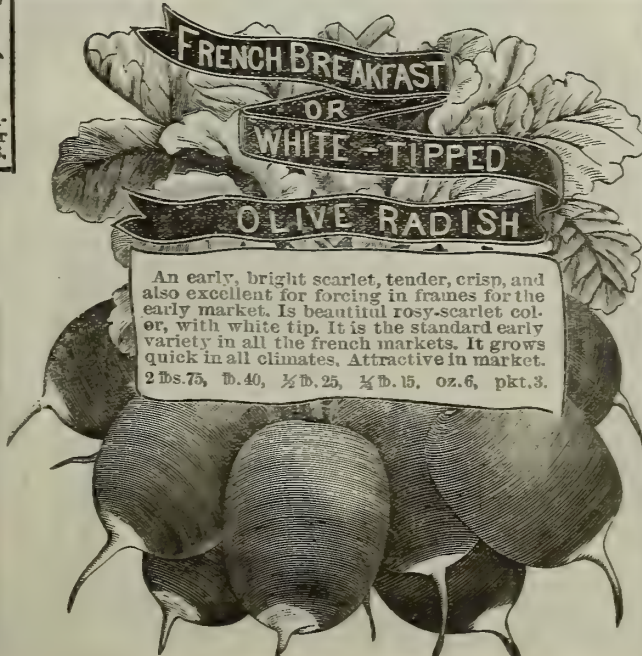 FRENCH BREAKFAST
OR
WHITE-TIPPED
OLIVE RADISH
An early, bright scarlet, tender, crisp, and
also excellent for forcing in frames for the
early market. Is beautiful rosy-scarlet col-
or, with white tip. It is the standard early
variety in all the french markets. It grows
quick in all climates. Attractive in market.
2 lbs.75, lb.40, ½ lb.25, ¼ lb.15. oz.6, pkt.3.